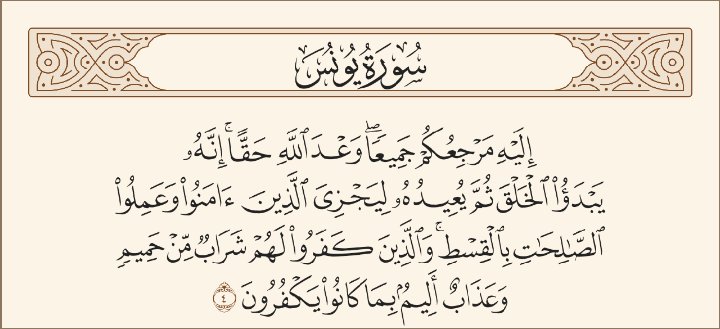 سُورَةُ يُونُسَ
إِلَيْهِ مَرْجِعُكُمْ جَمِيعًاۖ وَعْدَ ٱللَّهِ حَقًّاۚ إِنَّهُۥ
يَبْدَؤُا۟ ٱلْخَلْقَ ثُمَّ يُعِيدُهُۥ لِيَجْزِىَ ٱلَّذِينَ ءَامَنُوا۟ وَعَمِلُوا۟
ٱلصَّٰلِحَٰتِ بِٱلْقِسْطِۚ وَٱلَّذِينَ كَفَرُوا۟ لَهُمْ شَرَابٌ مِّنْ حَمِيمٍ
وَعَذَابٌ أَلِيمٌۢ بِمَا كَانُوا۟ يَكْفُرُونَ ٤